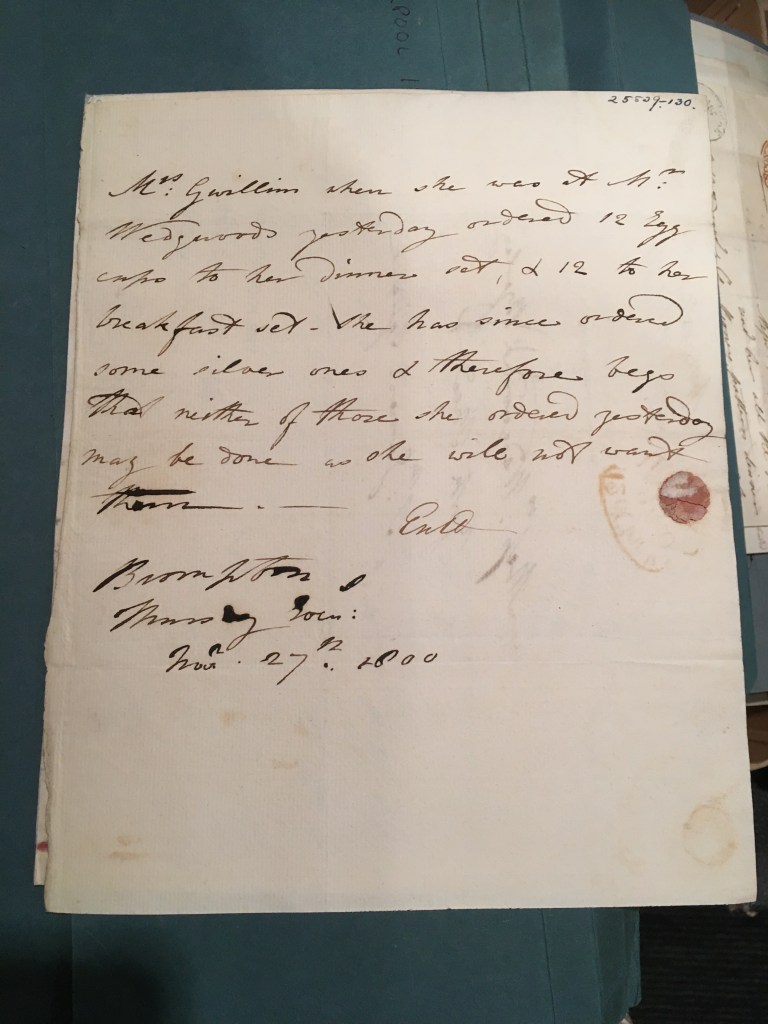 25529-130.
Mrs: Gwillim when she was at Mr:
Wedgwoods yesterday ordered 12 Egg
cups to her dinner set, & 12 to her
breakfast set - she has since ordered
some silver ones & therefore begs
that neither of those she ordered yesterday
may be done as she will not want
them. —
Entd
Brompton
Thursday Even:
Novr. 27th. 1800
POOL